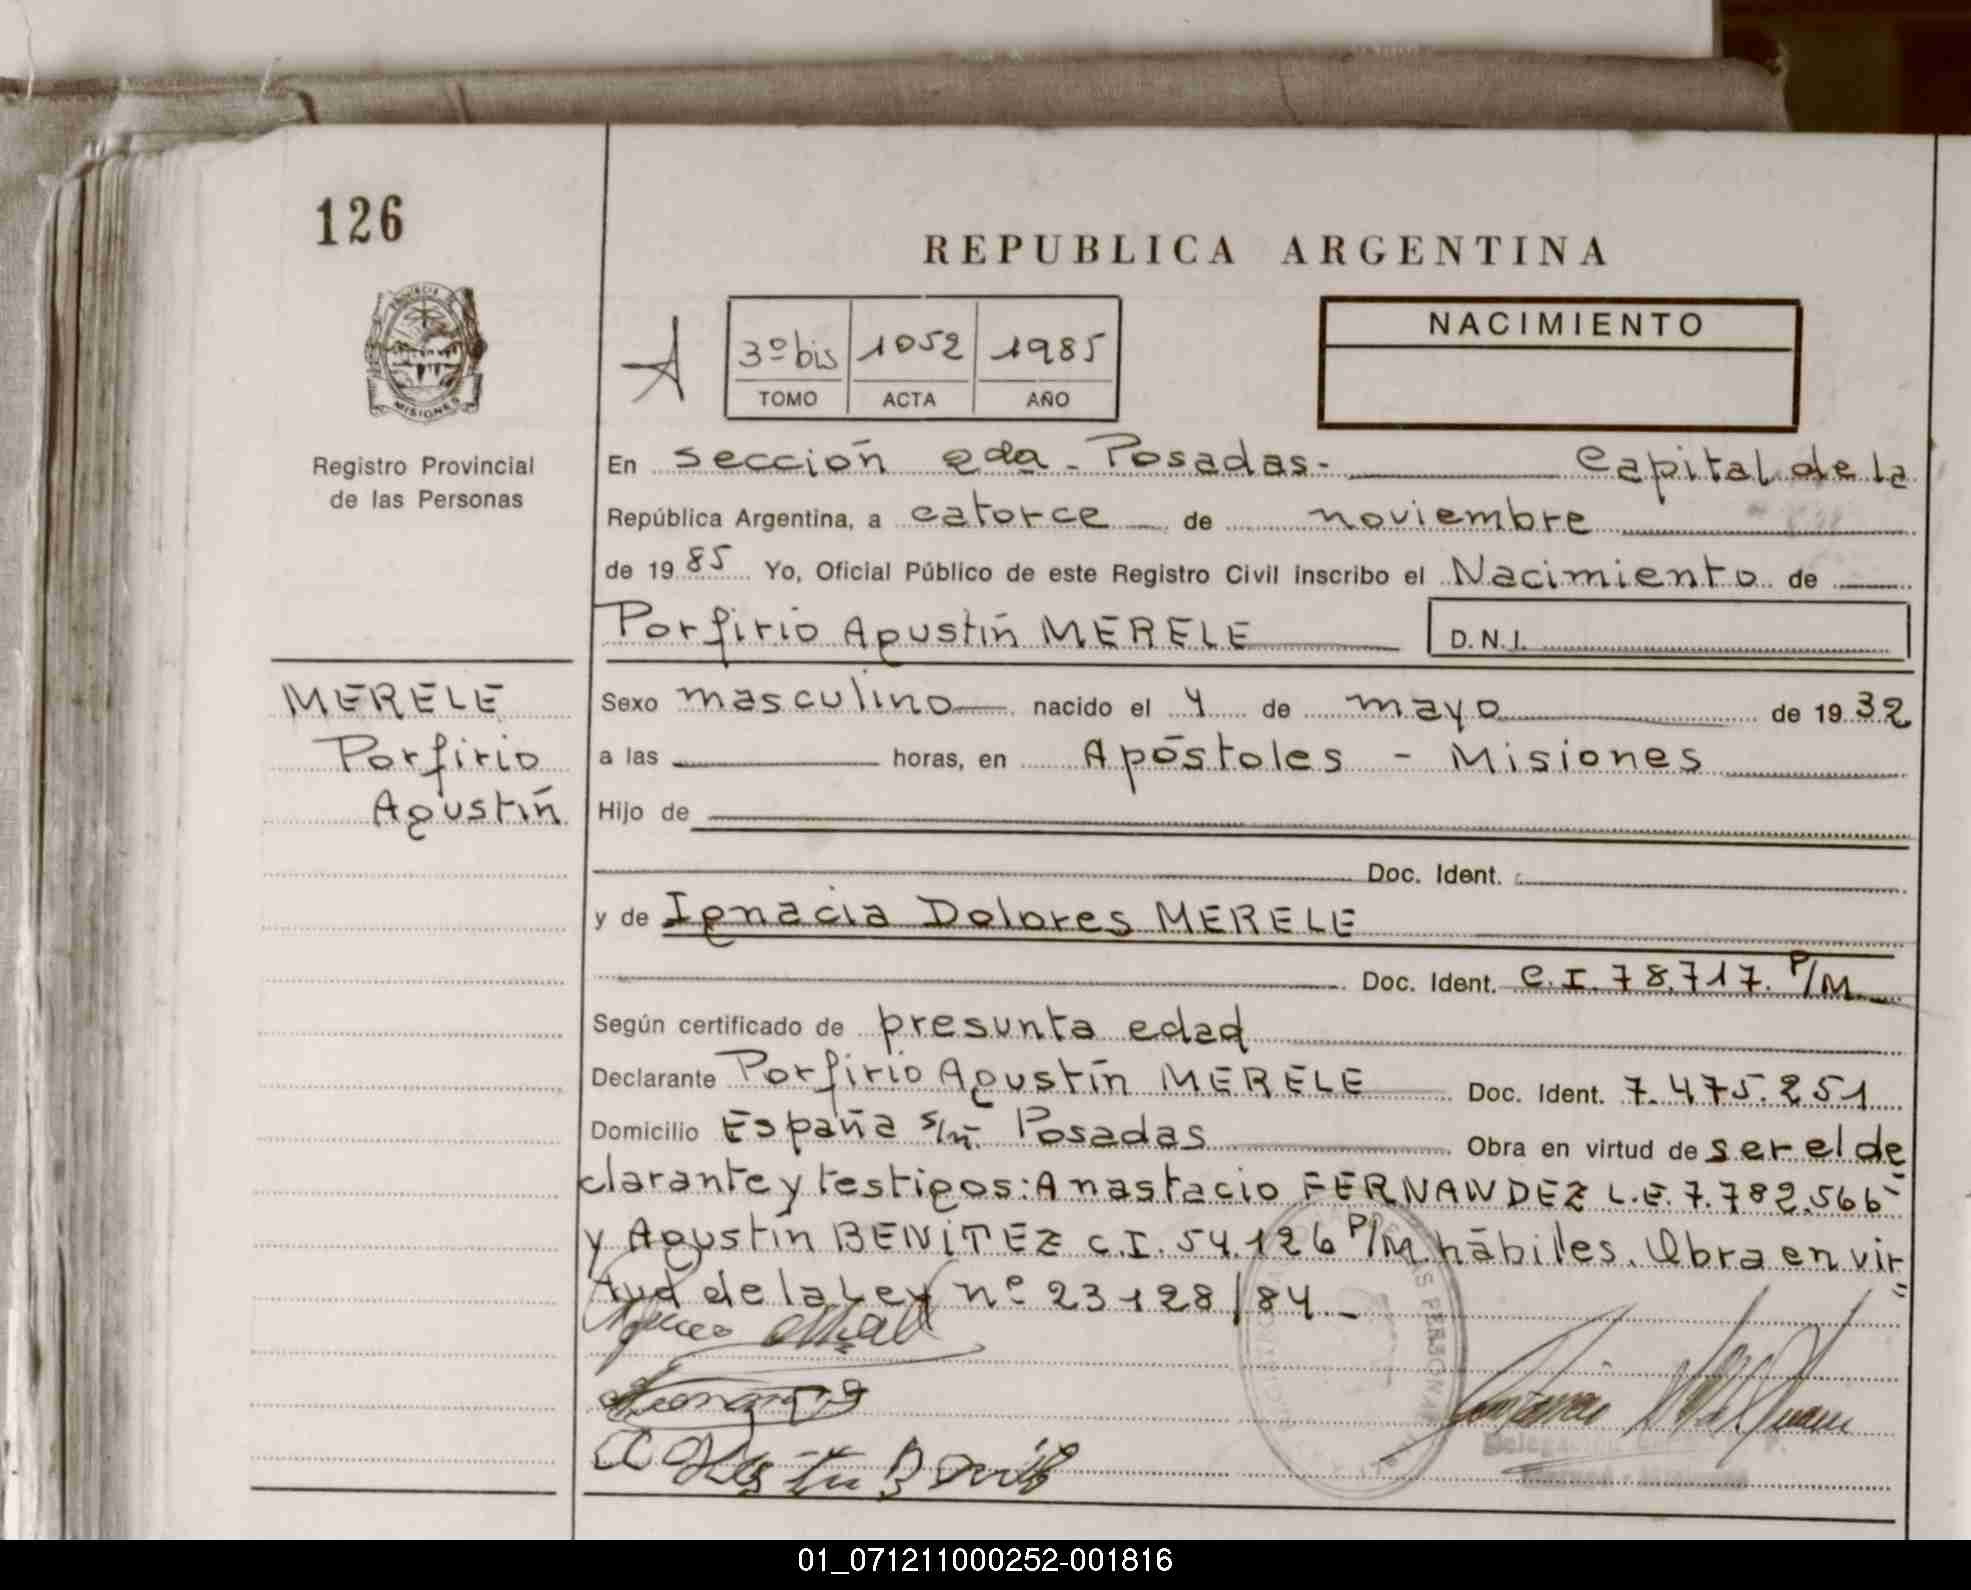 126
REPUBLICA ARGENTINA
PROVINCIA DE
MISIONES
Registro Provincial
de las Personas
A
3º bis 1052 1985
TOMO ACTA AÑO
NACIMIENTO
En sección 2da - Posadas - Capital de la
República Argentina, a catorce de noviembre
de 19 85 Yo, Oficial Público de este Registro Civil inscribo el Nacimiento de
Porfirio Agustín MERELE D.N.I.
MERELE
Porfirio
Agustín
Sexo masculino nacido el 4 de mayo de 19 32
a las horas, en Apóstoles - Misiones
Hijo de
Doc. Ident.
y de Ignacia Dolores MERELE
Doc. Ident. C.I. 78.717. P/M
Según certificado de presunta edad
Declarante Porfirio Agustín MERELE Doc. Ident. 7.475.251
Domicilio España s/n. Posadas Obra en virtud de ser el de
clarante y testigos: Anastacio FERNANDEZ L.E. 7.782.566
y Agustín BENÍTEZ C.I. 54.126 P/M. hábiles. Obra en vir
tud de la Ley nº 23128/84
01_071211000252-001816